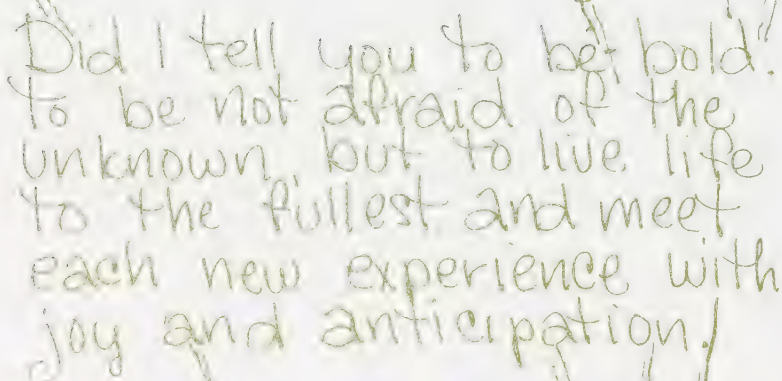 Did I tell you to be bold?
to be not afraid of the
unknown, but to live life
to the fullest and meet
each new experience with
joy and anticipation!